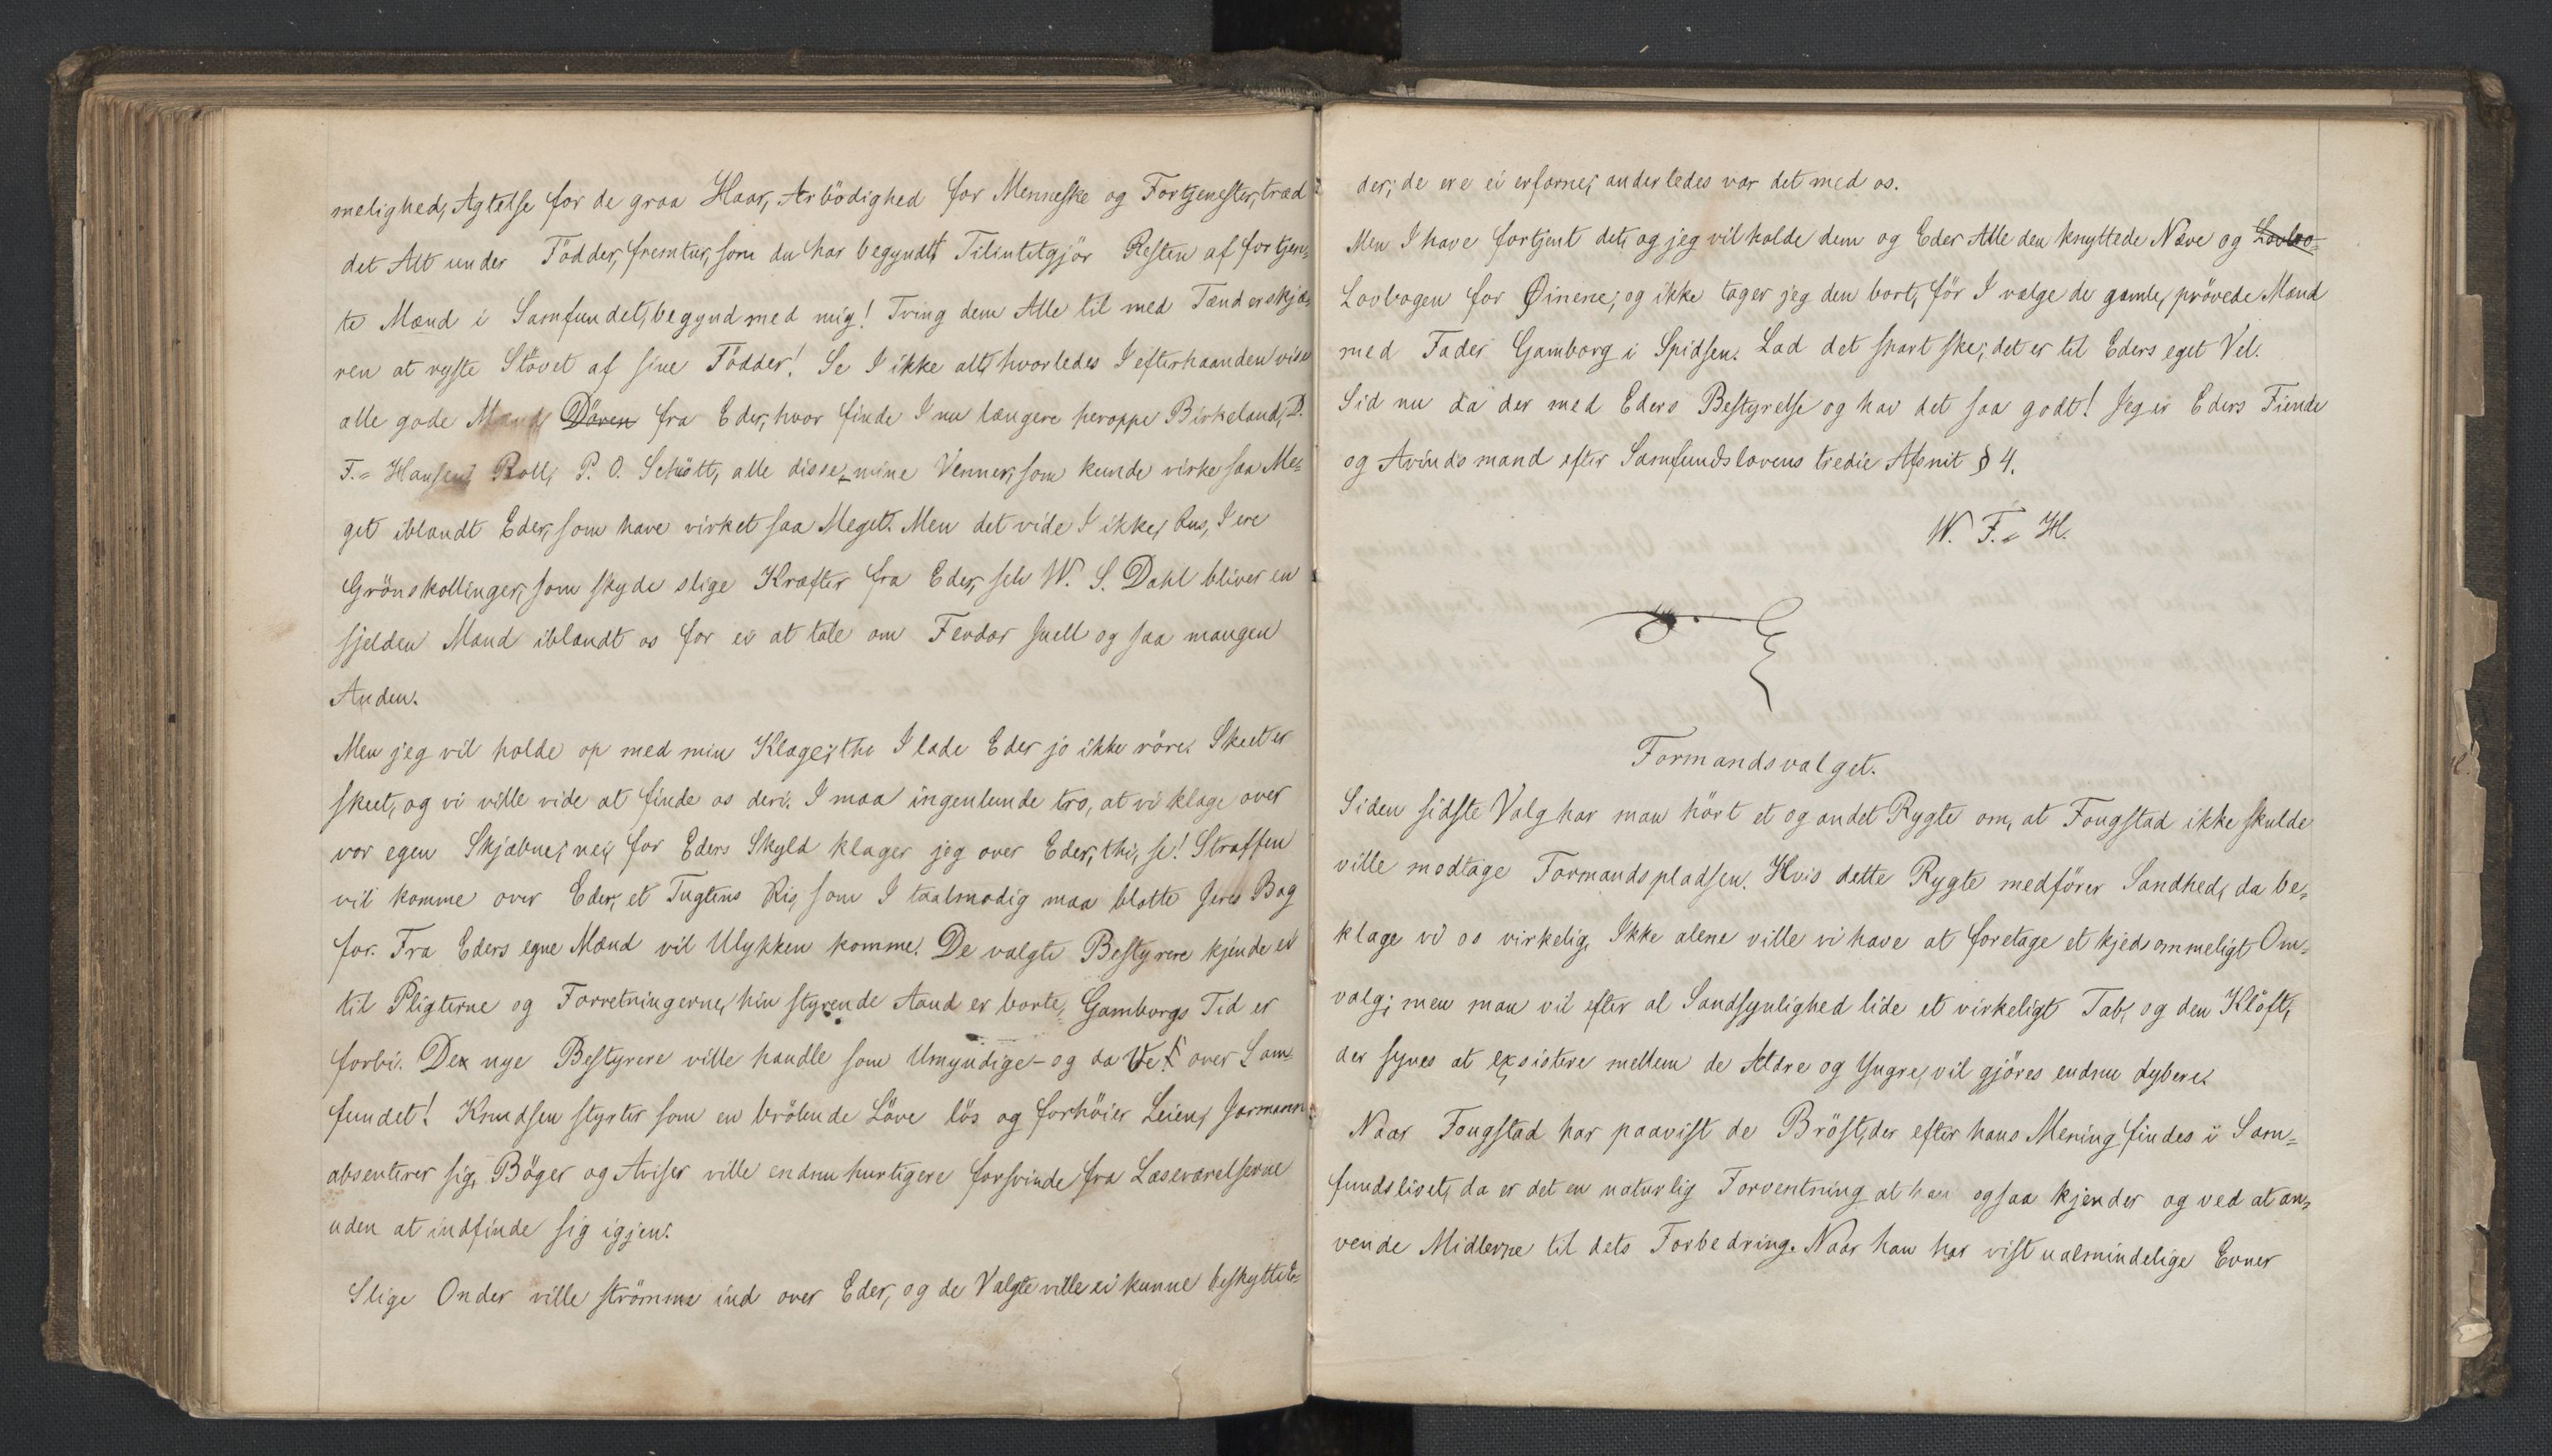 melighed, Agtelse for de graa Haar, Ærbödighed for Menneske og Fortjenester, træd
det Alt under Födder, fremtur, som du har begyndt! Tilintetgjör Resten af fortjen-
te Mænd i Samfundet, begynd med mig! Tving dem Alle til med Tænderskjæ-
ren at ryste Stövet af sine Födder! Se I ikke alt, hvorledes I efterhaanden vise
alle gode Mænd Dören fra Eder, hvor finde I nu længere heroppe Birkeland, D.
F.= Hansen, Roll, P. O. Schiött, alle disse, mine Venner, som kunde virke saa Me-
get iblandt Eder, som have virket saa Meget. Men det vide I ikke, I ere
Grönskollinger, som skyde slige Kræfter fra Eder, selv W. S. Dahl bliver en
sjelden Mand iblandt os for ei at tale om Feodor Juell og saa mangen
Anden.
Men jeg vil holde op med min Klage, thi I lade Eder jo ikke röre. Skeet er
skeet, og vi ville vide at finde os deri. I maa ingenlunde tro, at vi klage over
vor egen Skjæbne; nei, for Eders Skyld klager jeg over Eder, thi, se! Straffen
vil komme over Eder, et Tugtens Ris, som I taalmodig maa blotte Jeres Bag
for. Fra Eders egne Mænd vil Ulykken komme. De valgte Bestyrere kjende ei
til Pligterne og Forretningerne, hin styrende Aand er borte, Gamborgs Tid er
forbi. De nye Bestyrere ville handle som Umyndige - og da Ve! over Sam-
fundet! Knudsen styrter som en brölende Löve lös og forhöier Leien, Jormann
absenterer sig, Böger og Aviser ville endnu hurtigere forsvinde fra Læseværelserne
uden at indfinde sig igjen.
Slige Onder ville strömme ind over Eder, og de Valgte ville ei kunne beskytte E-
der; de ere ei erfarne; anderledes var det med os.
Men I have fortjent det, og jeg vil holde dem og Eder Alle den knyttede Næve og Lovbo-
Lovbogen for Øinene; og ikke tager jeg den bort, för I vælge de gamle, prövede Mænd
med Fader Gamborg i Spidsen. Lad det snart ske; det er til Eders eget Vel.
Sid nu da der med Eders Bestyrelse og hav det saa godt! Jeg er Eders Fiende
og Avindsmand efter Samfundslovens tredie Afsnit § 4.
W. F.= H.
Formandsvalget.
Siden sidste Valg har man hört et og andet Rygte om, at Fougstad ikke skulde
ville modtage Formandspladsen. Hvis dette Rygte medförer Sandhed, da be-
klage vi os virkelig. Ikke alene ville vi have at foretage et kjedsommeligt Om-
valg; men man vil efter al Sandsynlighed lide et virkeligt Tab, og den Klöft,
der synes at exsistere mellem de Ældre og Yngre, vil gjöres endnu dybere.
Naar Fougstad har paavist de Bröst, der efter hans Mening findes i Sam-
fundslivet, da er det en naturlig Forventning at han ogsaa kjender og ved at an-
vende Midlerne til dets Forbedring. Naar han har vist ualmindelige Evner